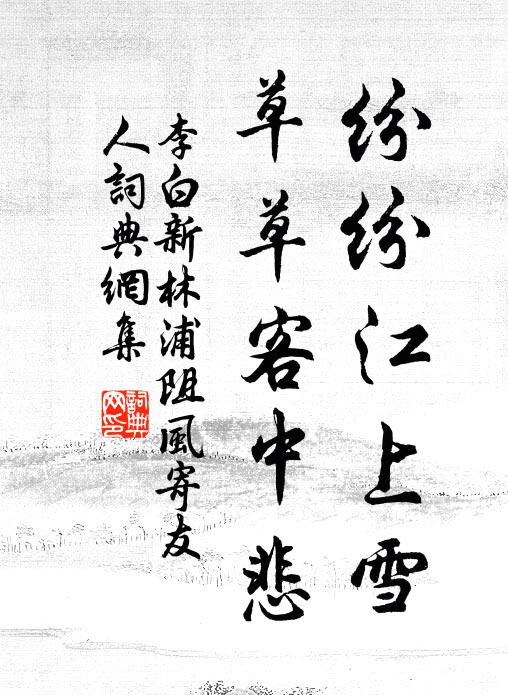 紛紛江上雪
草草客中悲
李白新林浦阻風寄友
人詞典網集
詞典
网印